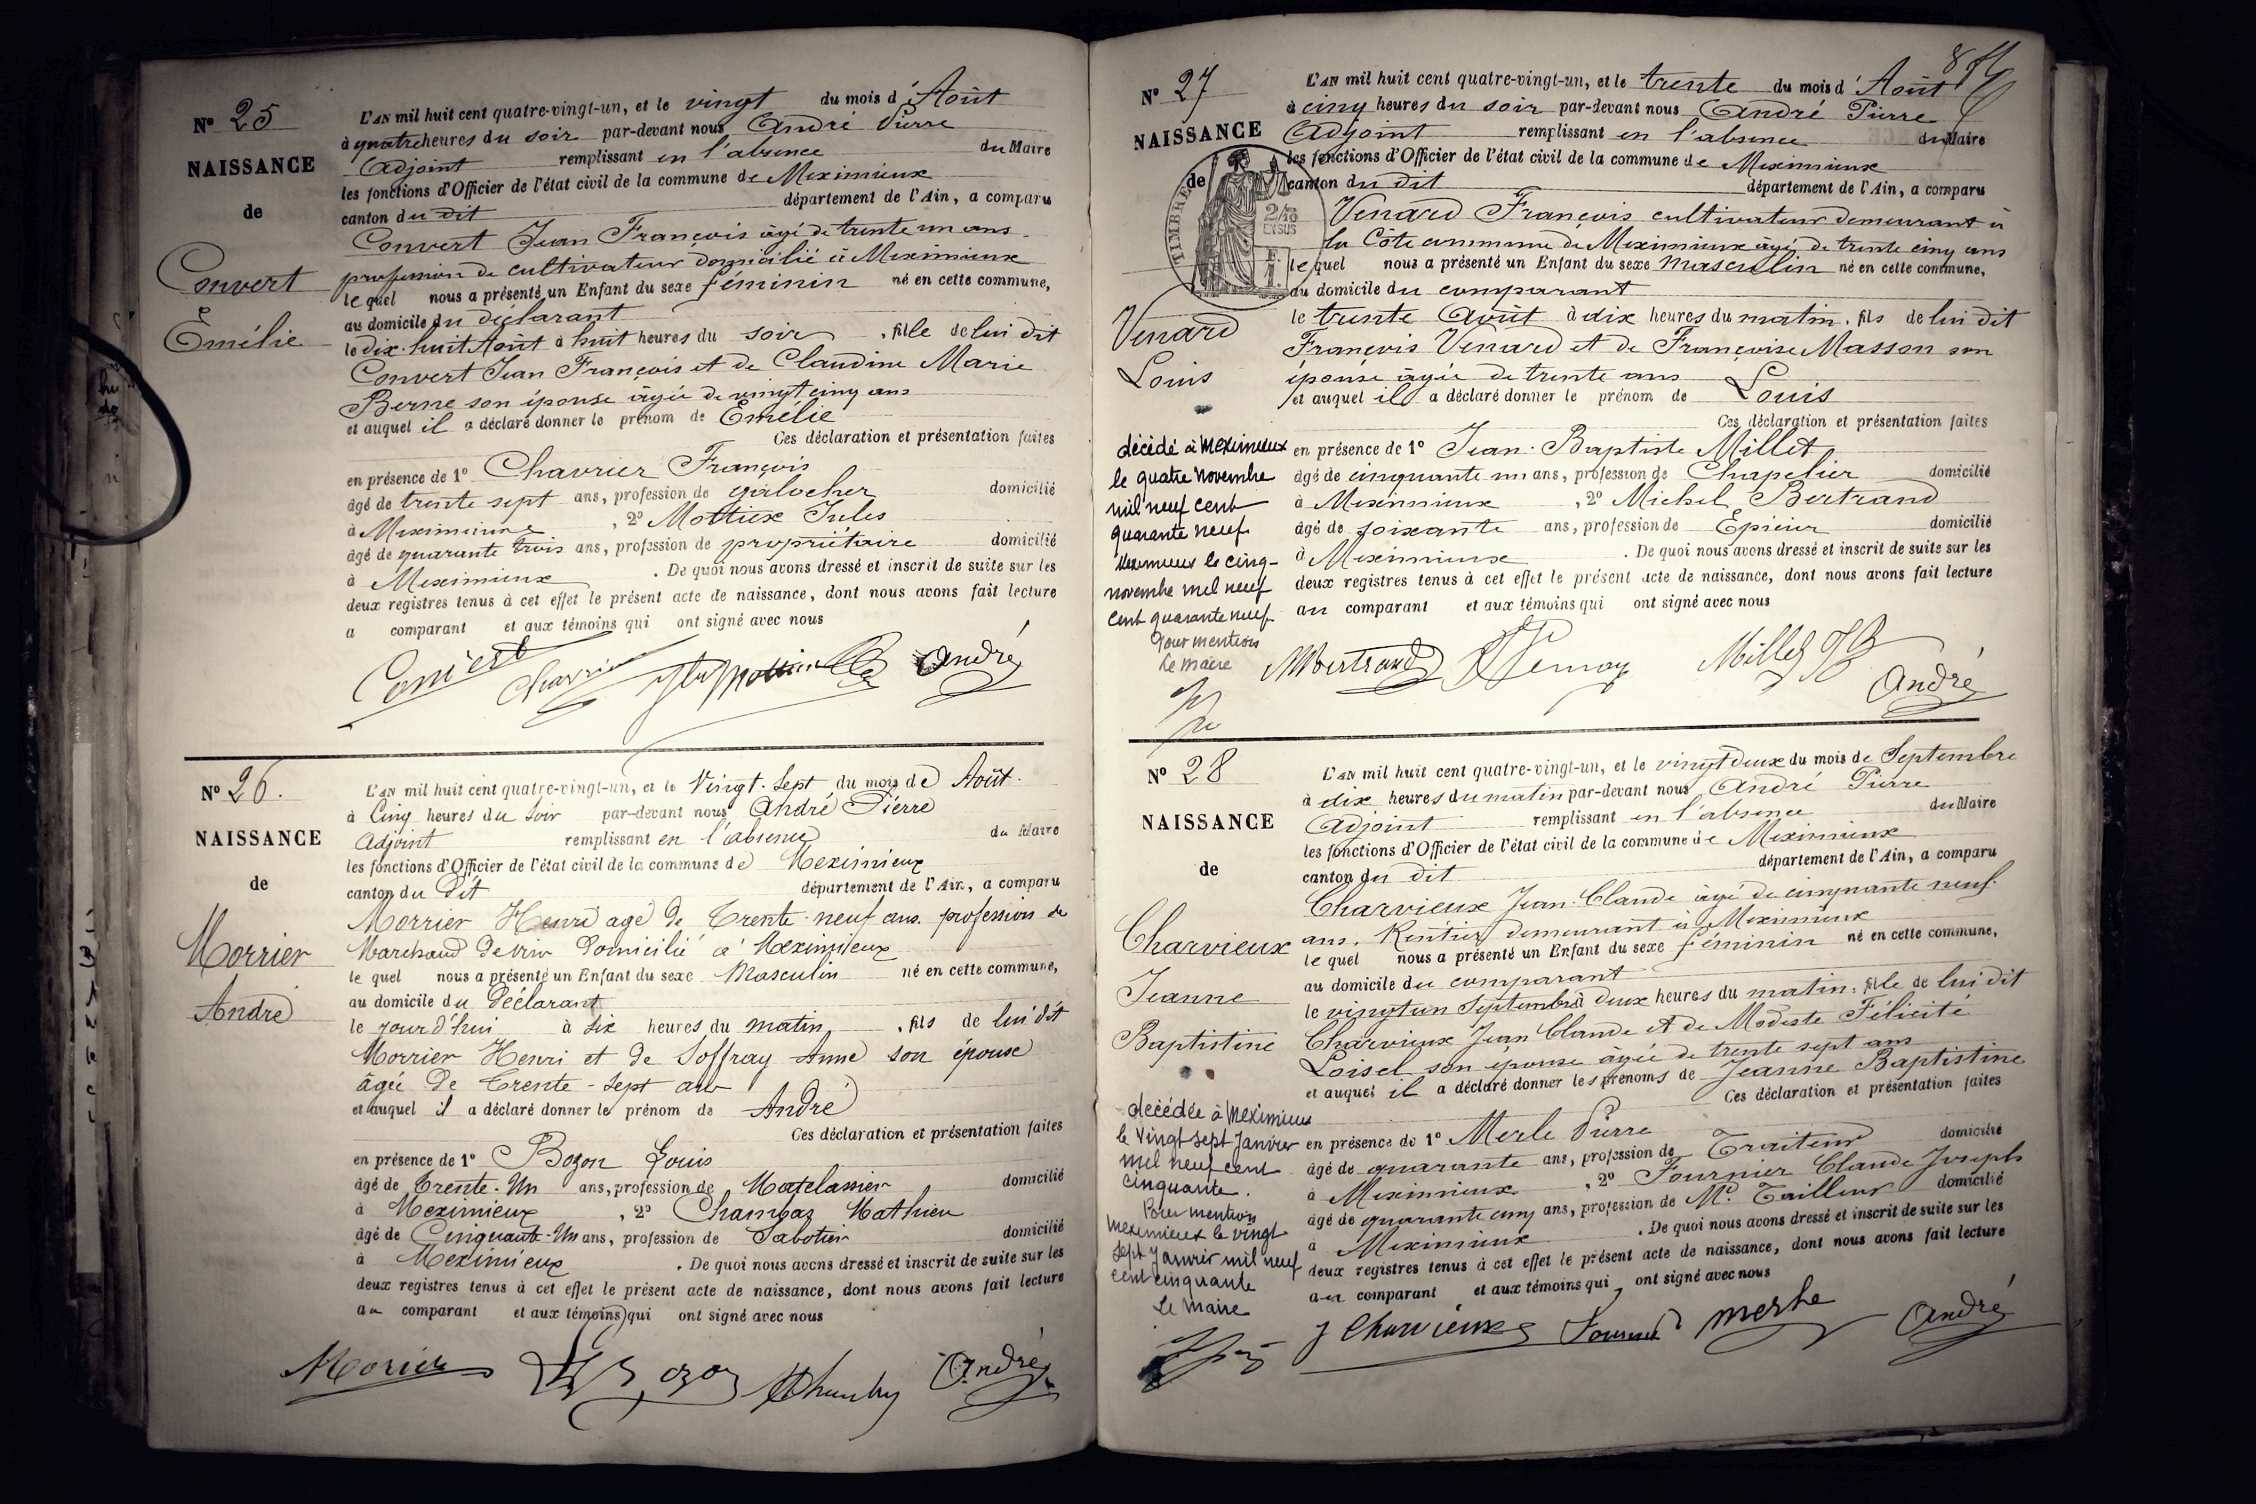 N° 25
NAISSANCE
de
Convert
Emélie
L'AN mil huit cent quatre-vingt-un, et le vingt du mois d'Août
à quatre heures du soir par-devant nous André Pierre
Adjoint remplissant en l'absence du Maire
les fonctions d'Officier de l'état civil de la commune de Meximieux
canton du dit département de l'Ain, a comparu
Convert Jean François âgé de trente un ans
profession de cultivateur domicilié à Meximieux
lequel nous a présenté un Enfant du sexe féminin né en cette commune,
au domicile du déclarant
le dix-huit Août à huit heures du soir, fille de lui dit
Convert Jean François et de Claudine Marie
Berne son épouse âgée de vingt cinq ans
et auquel il a déclaré donner le prénom de Emélie
Ces déclaration et présentation faites
en présence de 1° Chavrier François
âgé de trente sept ans, profession de galocher domicilié
à Meximieux, 2° Mottiex Jules
âgé de quarante trois ans, profession de propriétaire domicilié
à Meximieux. De quoi nous avons dressé et inscrit de suite sur les
deux registres tenus à cet effet le présent acte de naissance, dont nous avons fait lecture
a comparant et aux témoins qui ont signé avec nous
Convert Chavrier André
N° 26.
NAISSANCE
de
Morrier
André
L'AN mil huit cent quatre-vingt-un, et le Vingt-Sept du mois de Août.
à Cinq heures du Soir par-devant nous André Pierre
Adjoint remplissant en l'absence du Maire
les fonctions d'Officier de l'état civil de la commune de Meximieux
canton du Dit département de l'Ain, a comparu
Morrier Henri agé de Trente-neuf ans. profession de
Marchand de vin Domicilié à Meximieux
le quel nous a présenté un Enfant du sexe Masculin né en cette commune,
au domicile du Déclarant
le jourd'hui à Six heures du matin, fils de lui dit
Morrier Henri et de Soffray Anne son épouse
âgée De Trente-Sept ans
et auquel il a déclaré donner le prénom de André
Ces déclaration et présentation faites
en présence de 1° Bozon Louis
âgé de Trente-Un ans, profession de Matelassier domicilié
à Meximieux, 2° Chambaz Mathieu
âgé de Cinquante-Un ans, profession de Sabotier domicilié
à Meximieux. De quoi nous avons dressé et inscrit de suite sur les
deux registres tenus à cet effet le présent acte de naissance, dont nous avons fait lecture
au comparant et aux témoins qui ont signé avec nous
Morier Bozon André
N° 27
NAISSANCE
de
TIMBRE
2/10
EN SUS
Venard
Louis
décédé à Meximieux
le quatre novembre
mil neuf cent
quarante neuf
Meximieux le cinq
novembre mil neuf
cent quarante neuf
Pour mention
Le maire
L'AN mil huit cent quatre-vingt-un, et le trente du mois d'Août
à cinq heures du soir par-devant nous André Pierre
Adjoint remplissant en l'absence du Maire
les fonctions d'Officier de l'état civil de la commune de Meximieux
canton du dit département de l'Ain, a comparu
Venard François cultivateur demeurant à
la Côte commune de Meximieux âgé de trente cinq ans
lequel nous a présenté un Enfant du sexe masculin né en cette commune,
au domicile du comparant
le trente Août à dix heures du matin, fils de lui dit
François Venard et de Françoise Masson son
épouse âgée de trente ans
et auquel il a déclaré donner le prénom de Louis
Ces déclaration et présentation faites
en présence de 1° Jean-Baptiste Millet
âgé de cinquante un ans, profession de Chapelier domicilié
à Meximieux, 2° Michel Bertrand
âgé de soixante ans, profession de Epicier domicilié
à Meximieux. De quoi nous avons dressé et inscrit de suite sur les
deux registres tenus à cet effet le présent acte de naissance, dont nous avons fait lecture
au comparant et aux témoins qui ont signé avec nous
MBertrand Millet JB
André
N° 28
NAISSANCE
de
Charvieux
Jeanne
Baptistine
décédée à Meximieux
le Vingt sept Janvier
mil neuf cent
cinquante.
Pour mention
Meximieux le vingt
sept Janvier mil neuf
cent cinquante
Le Maire
L'AN mil huit cent quatre-vingt-un, et le vingt deux du mois de Septembre
à dix heures du matin par-devant nous André Pierre
Adjoint remplissant en l'absence du Maire
les fonctions d'Officier de l'état civil de la commune de Meximieux
canton du dit département de l'Ain, a comparu
Charvieux Jean-Claude âgé de cinquante neuf
ans, Rentier demeurant à Meximieux
le quel nous a présenté un Enfant du sexe féminin né en cette commune,
au domicile du comparant
le vingt un Septembre à deux heures du matin, fille de lui dit
Charvieux Jean Claude et de Modeste Félicité
Loisel son épouse âgée de trente sept ans
et auquel il a déclaré donner les prénoms de Jeanne Baptistine
Ces déclaration et présentation faites
en présence de 1° Merle Pierre
âgé de quarante ans, profession de Traiteur domicilié
à Meximieux, 2° Fournier Claude Joseph
âgé de quarante cinq ans, profession de Md. Tailleur domicilié
à Meximieux. De quoi nous avons dressé et inscrit de suite sur les
deux registres tenus à cet effet le présent acte de naissance, dont nous avons fait lecture
au comparant et aux témoins qui ont signé avec nous
J Charvieux Fournier merle André